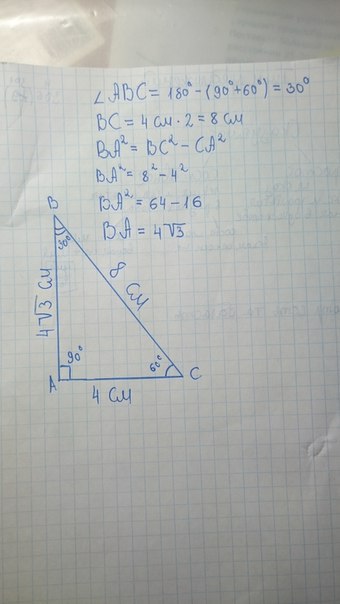 ∠ABC = 180° - (90° + 60°) = 30°
BC = 4 см · 2 = 8 см
BA² = BC² - CA²
BA² = 8² - 4²
BA² = 64 - 16
BA = 4√3
B
30°
8 см
4√3 см
90°
60°
A
C
4 см